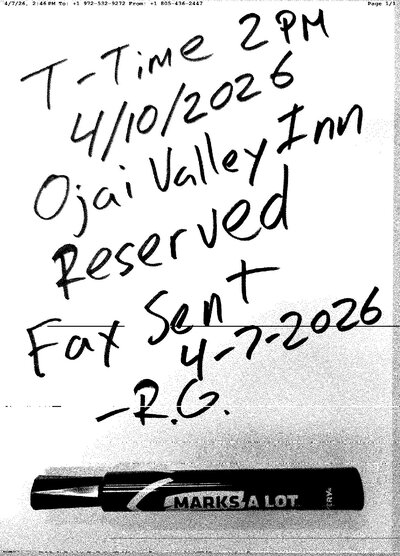 4/7/26, 2:46 PM To: +1 972-532-9272 From: +1 805-436-2447 Page 1/1
T-Time 2PM
4/10/2026
Ojai Valley Inn
Reserved
Fax Sent
4-7-2026
-R.G.
MARKS A LOT